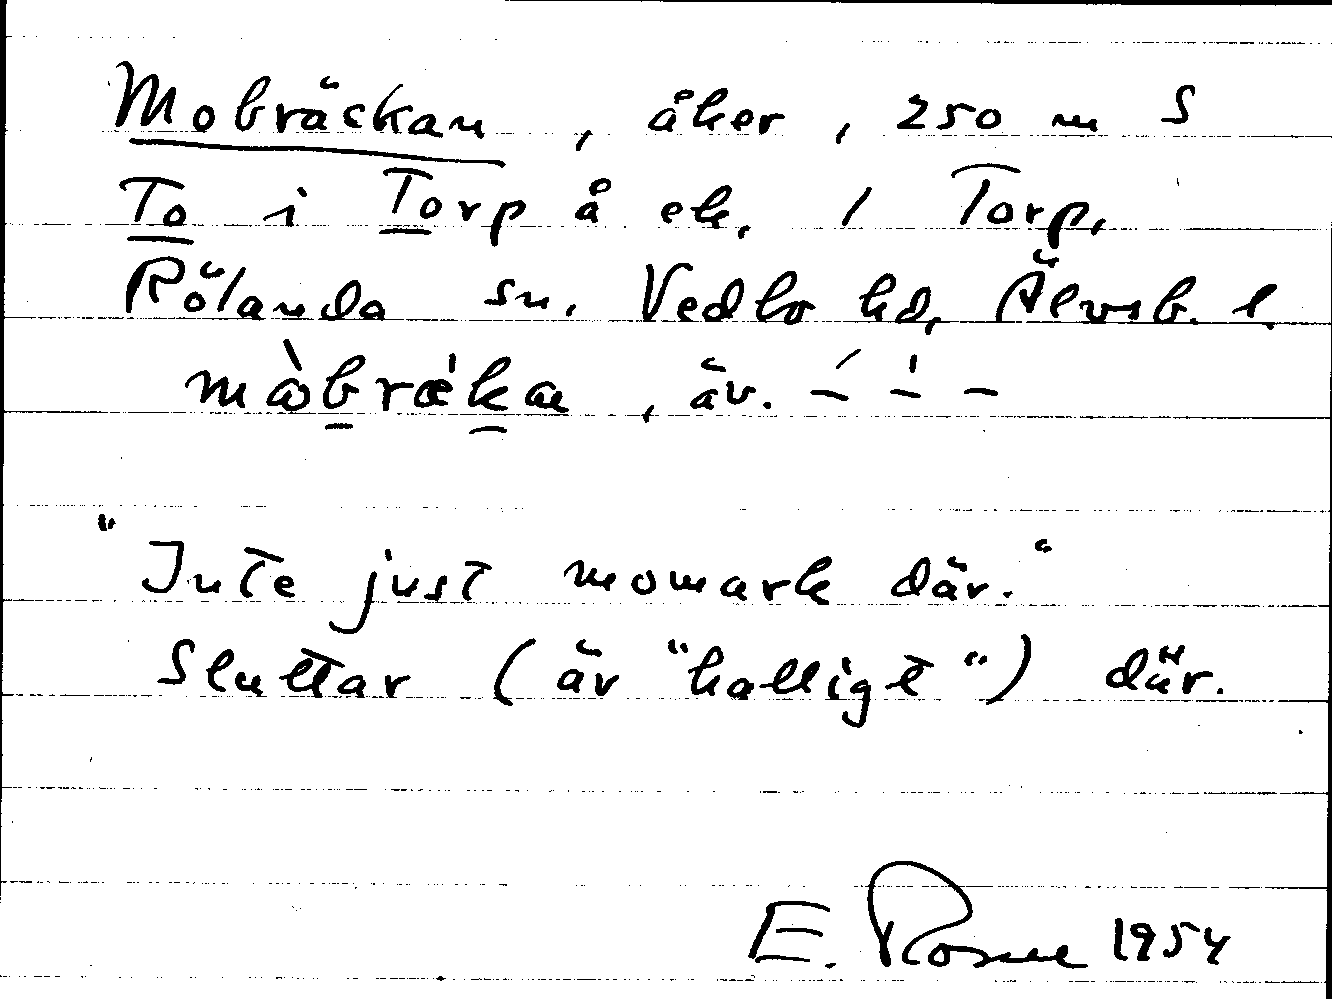 Mobräckan, åker, 250 m S
To i Torp å ek. 1 Torp,
Rölanda sn. Vedbo hd, Älvsb. l.
mòbrǽka, äv. – – –
"Inte just momark där."
Sluttar (är "halligt") där.
E. Rosell 1954